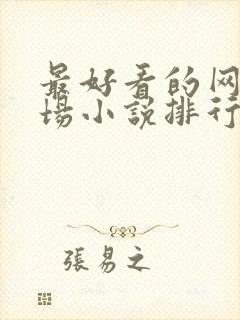 最好看的网
场小说排行
張易之